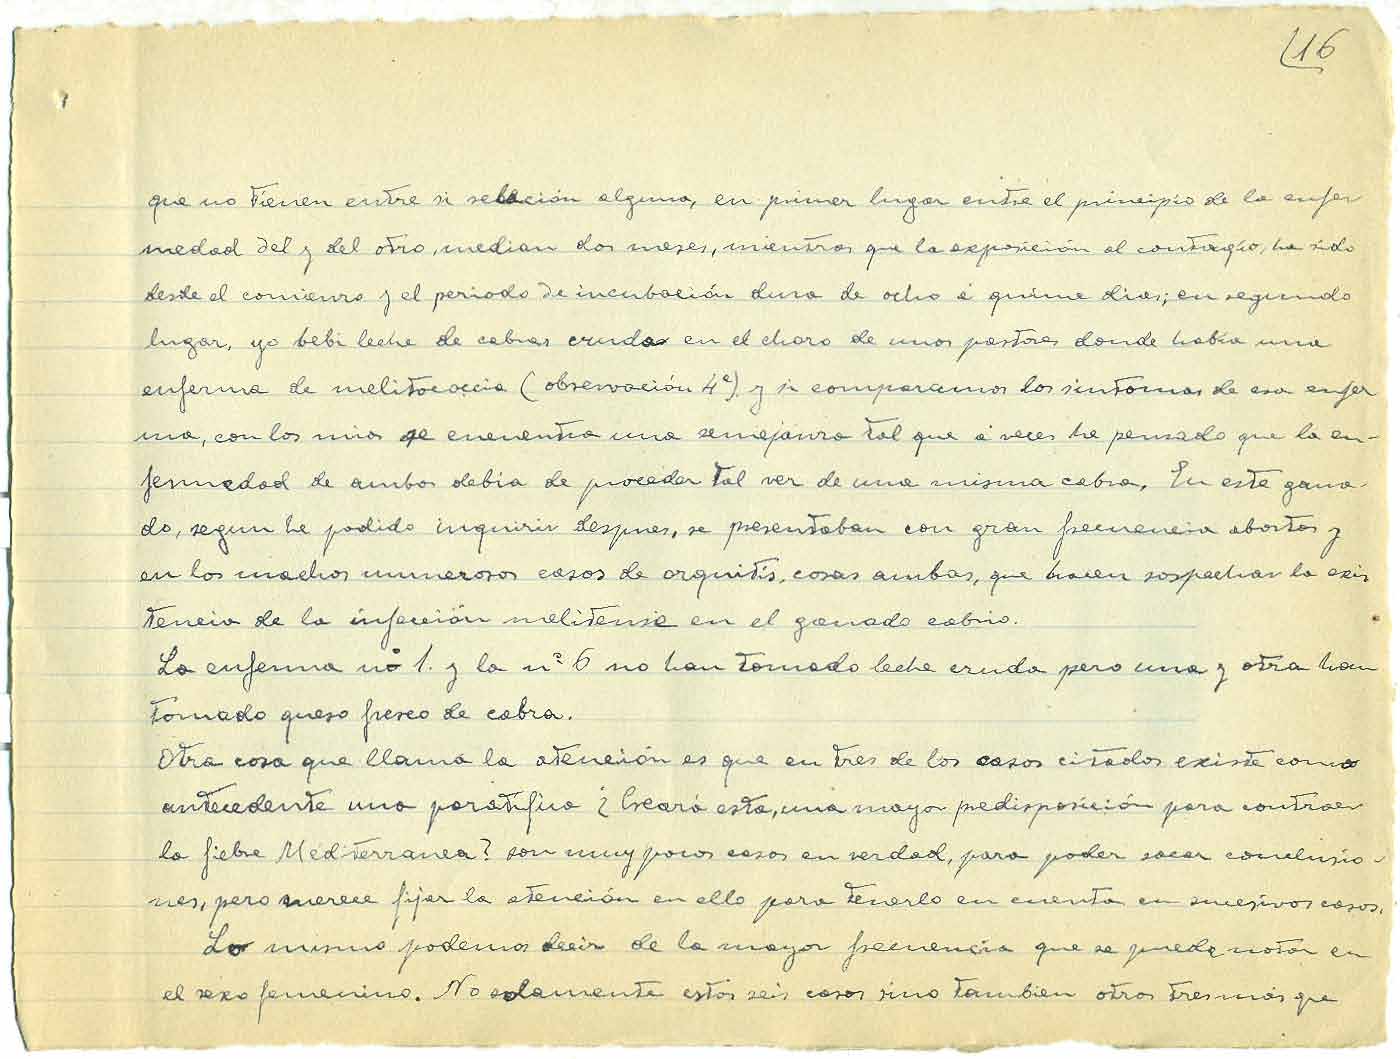 16
que no tienen entre si relación alguna, en primer lugar entre el principio de la enfer
medad del y del otro, median dos meses, mientras que la exposición al contagio, ha sido
desde el comienzo y el periodo de incubación dura de ocho á quince dias; en segundo
lugar, yo bebi leche de cabras cruda en el chozo de unos pastores donde había una
enferma de melitococcia (observación 4ª) y si comparamos los sintomas de esa enfer
ma, con los mios se encuentra una semejanza tal que á veces he pensado que la en-
fermedad de ambos debia de proceder tal vez de una misma cabra. En este gana-
do, segun he podido inquirir despues, se presentaban con gran frecuencia abortos y
en los machos numerosos casos de orquitis, cosas ambas, que hacen sospechar la exis
tencia de la infección melitense en el ganado cabrio.
La enferma nº 1. y la nº 6 no han tomado leche cruda pero una y otra han
tomado queso fresco de cabra.
Otra cosa que llama la atención es que en tres de los casos citados existe como
antecedente una paratifica ¿Creará esta, una mayor predisposición para contraer
la fiebre Mediterranea? son muy pocos casos en verdad, para poder sacar conclusio-
nes, pero merece fijar la atención en ello para tenerlo en cuenta en sucesivos casos.
Lo mismo podemos decir de la mayor frecuencia que se puede notar en
el sexo femenino. No solamente estos seis casos sino tambien otros tres más que